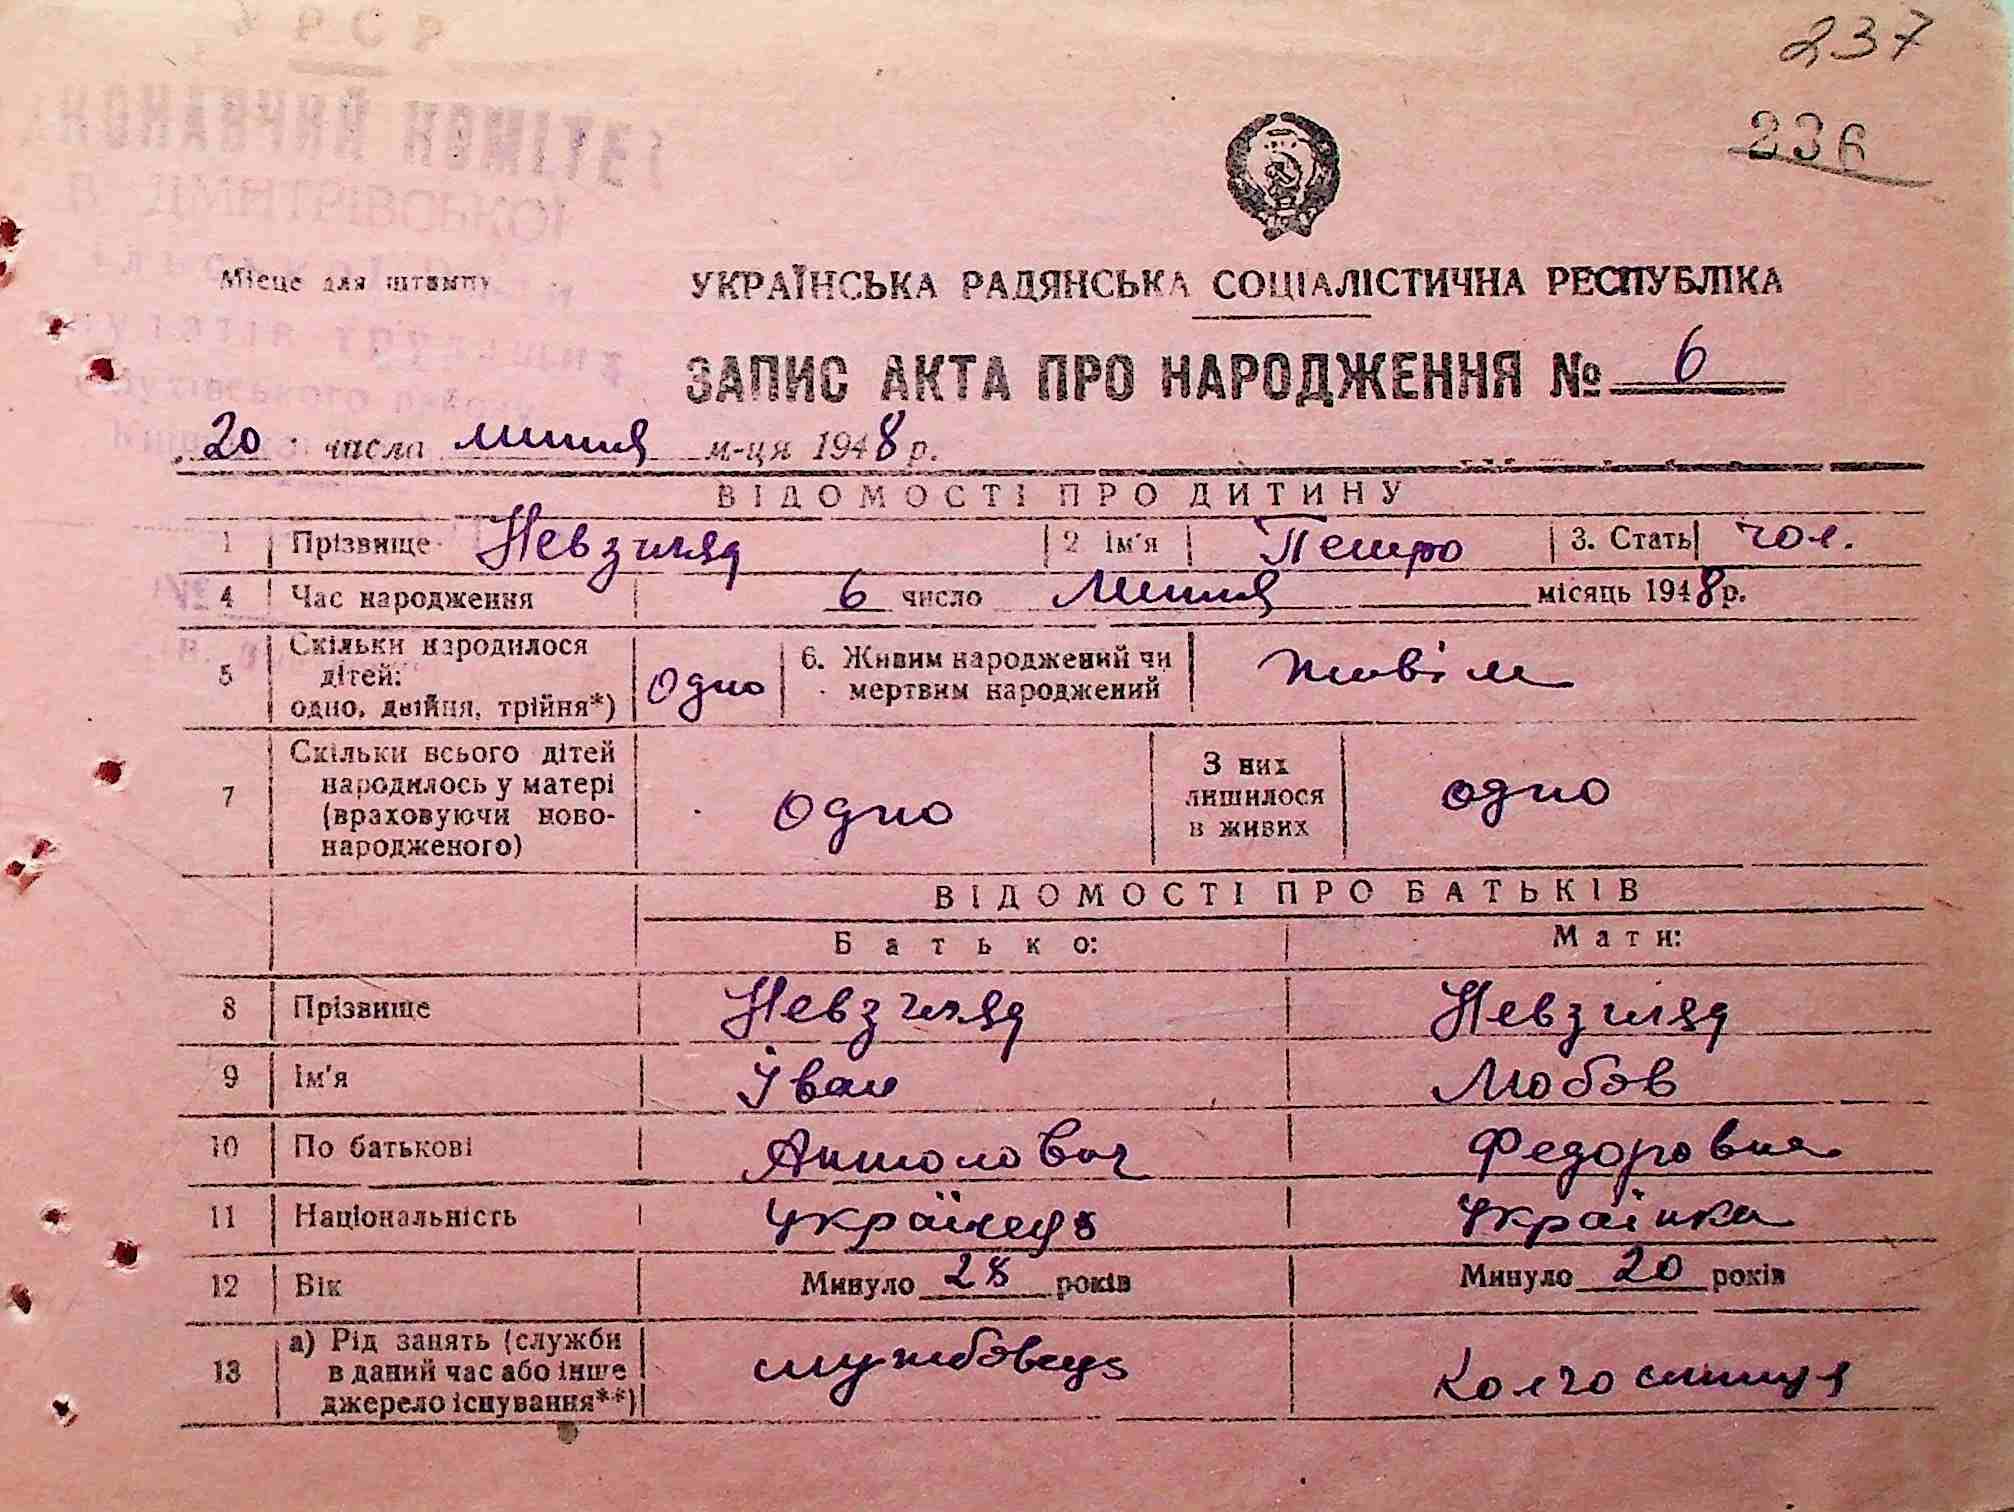 237
236
УРСР
ВИКОНАВЧИЙ КОМІТЕТ
В. ДМИТРІВСЬКОЇ
Місце для штампу
УКРАЇНСЬКА РАДЯНСЬКА СОЦІАЛІСТИЧНА РЕСПУБЛІКА
ЗАПИС АКТА ПРО НАРОДЖЕННЯ № 6
20 числа липня м-ця 1948 р.
ВІДОМОСТІ ПРО ДИТИНУ
1 Прізвище Невзгляд 2 Ім'я Петро 3. Стать чол.
4 Час народження 6 число Липня місяць 1948 р.
5 Скільки народилося дітей: одно, двійня, трійня*) Одно 6. Живим народжений чи мертвим народжений живім
7 Скільки всього дітей народилось у матері (враховуючи ново-народженого) одно З них лишилося в живих одно
ВІДОМОСТІ ПРО БАТЬКІВ
Батько: Мати:
8 Прізвище Невзгляд Невзгляд
9 Ім'я Іван Любов
10 По батькові Антонович Федоровна
11 Національність Українець Українка
12 Вік Минуло 28 років Минуло 20 років
13 а) Рід занять (служби в даний час або інше джерело існування**) службовець Колгоспниця